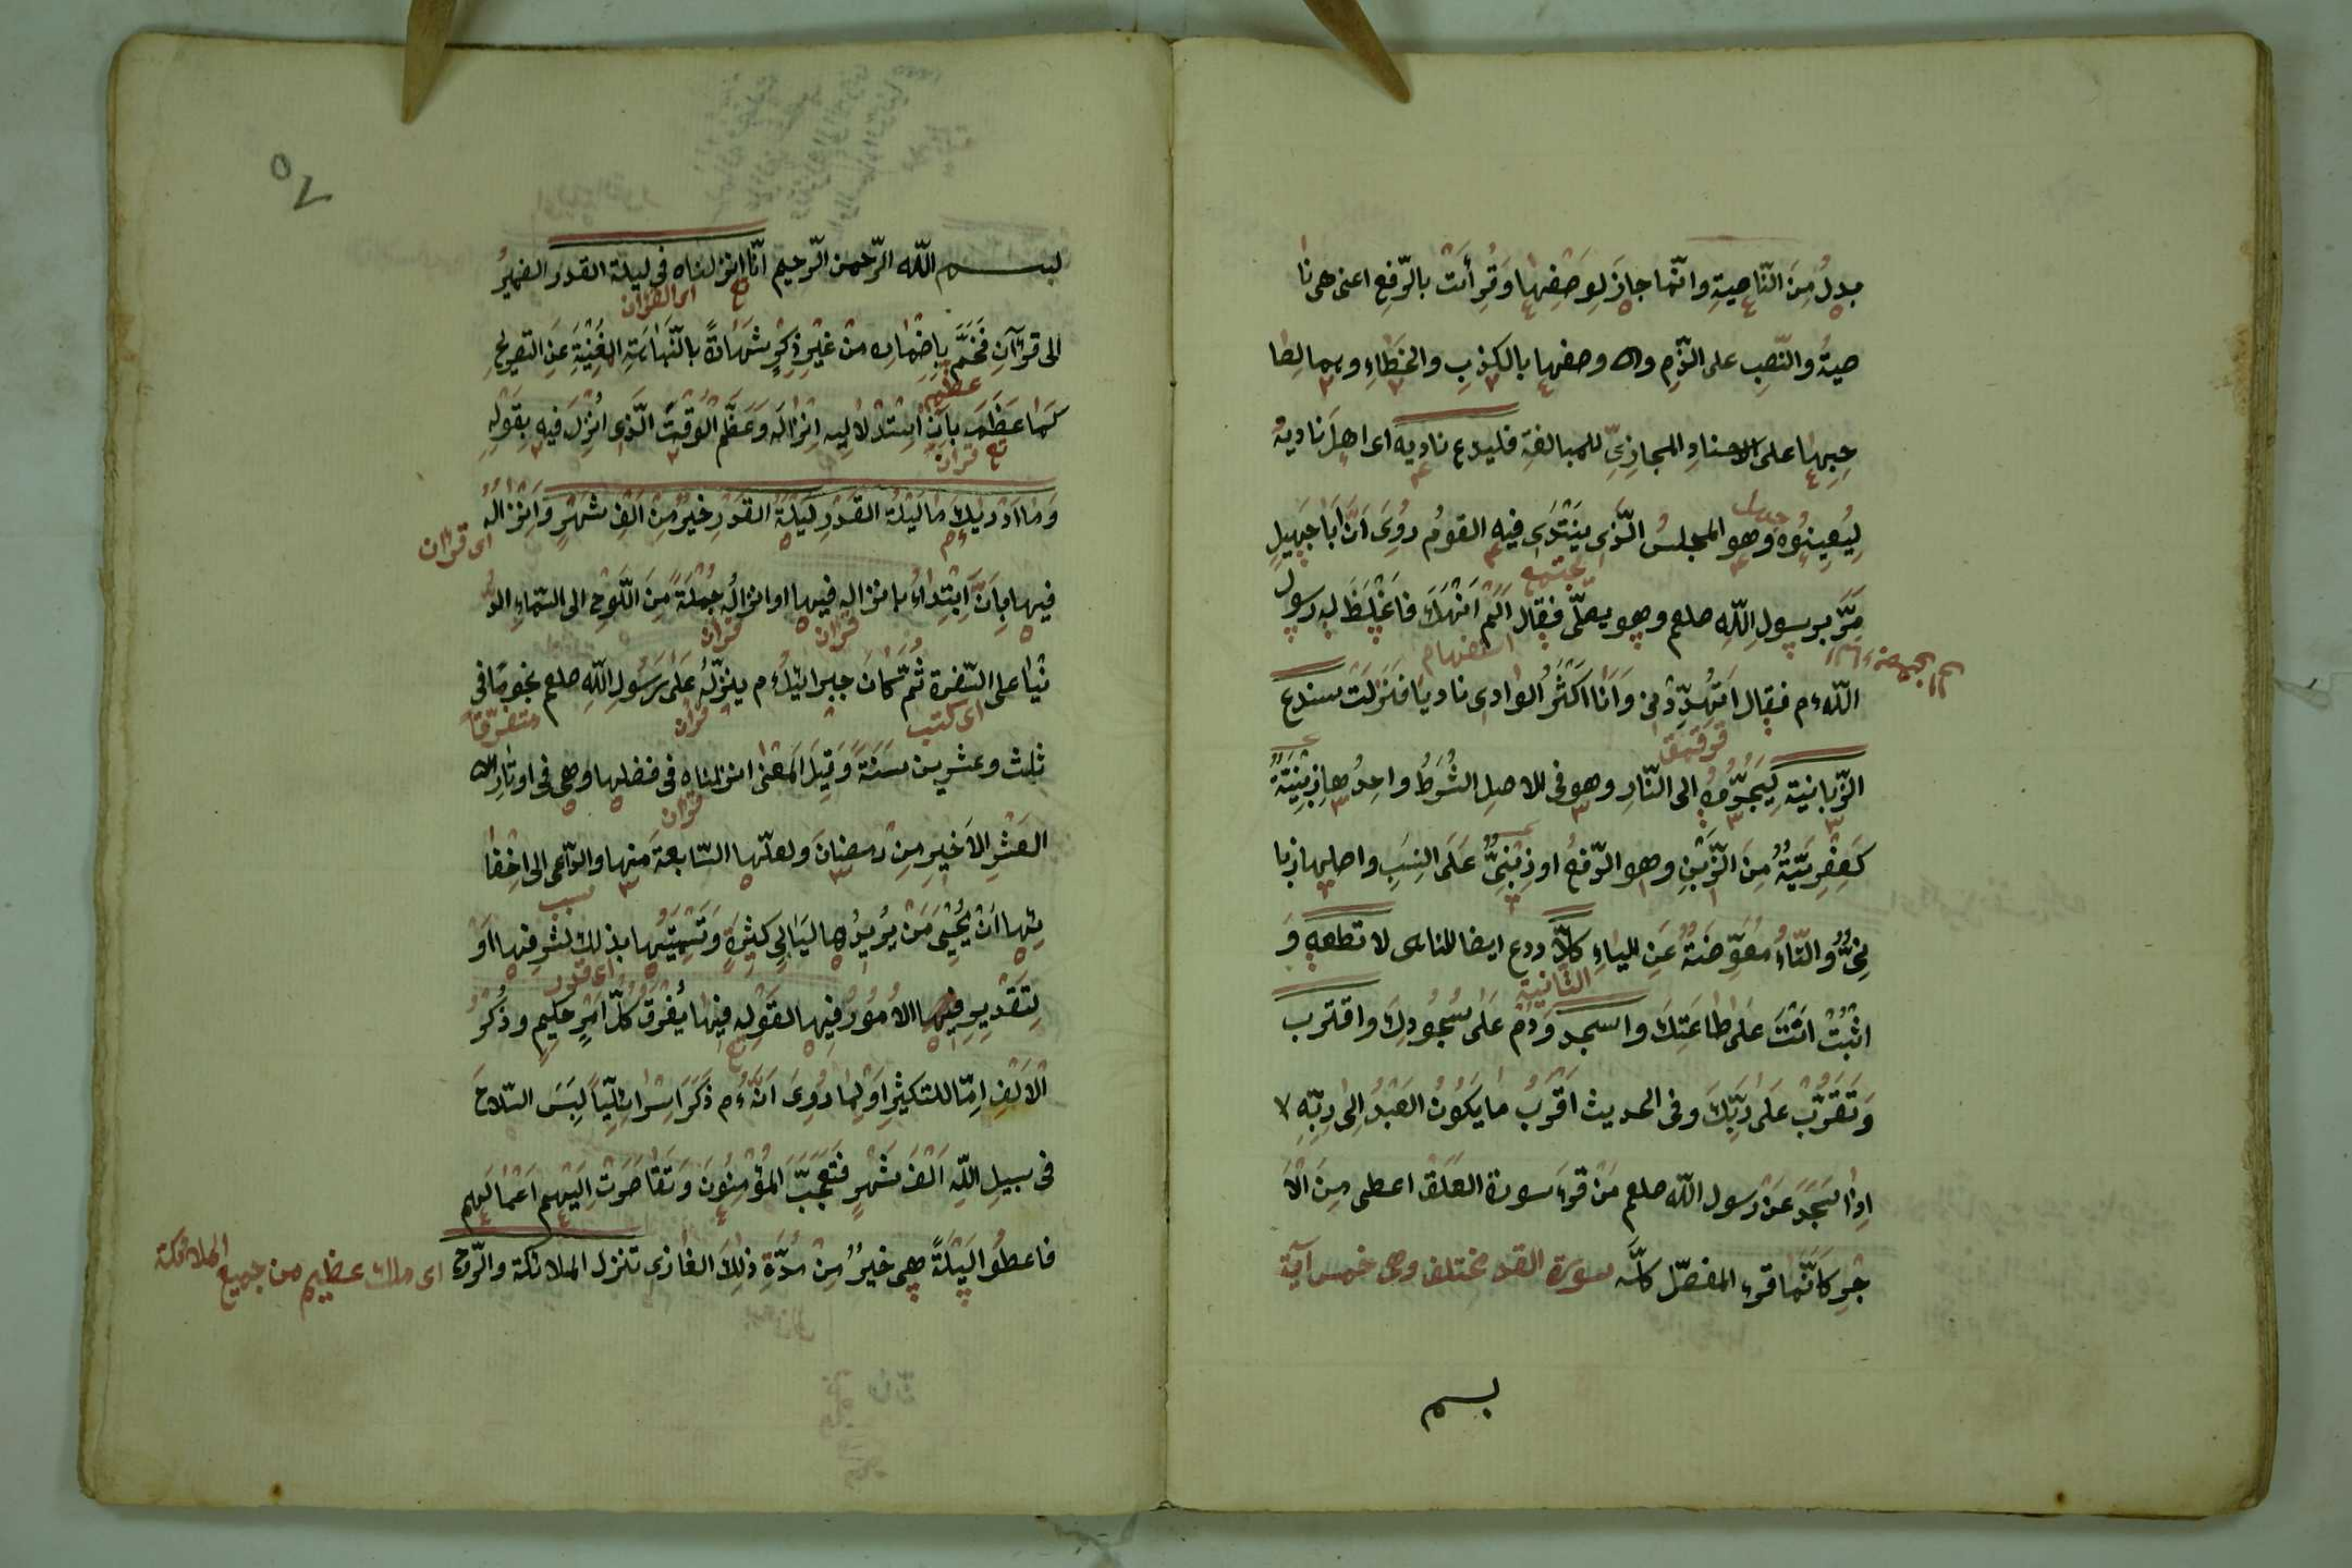 بدل من الناصية وانما جاز لوصفها وقرأت بالرفع اعنى هى نا
صية والنصب على الذم و وصفها بالكذب والخطاء وهما لصا
حبها على الاسناد المجازى للمبالغة فليدع ناديه اى اهل ناديه
ليعينوه وهو المجلس الذى ينتدى فيه القوم روى ان ابا جهيل
يجتمع
مر برسول الله صلعم وهو يصلى فقال الم انهك فاغلظ له رسول
استفهام
الله ءم فقال اتهددنى وانا اكثر الوادى ناديا فنزلت سندع
الزبانية ليجروه الى النار وهو فى للاصل الشرط واحدها زبنية
كعفرية من الزبن وهو الدفع او زبنى على النسب واصلها زبا
نى والتاء معوضة عن الياء كلا ردع ايضا للناهى لا تطعه و
الثانية
اثبت انت على طاعتك واسجد ودم على سجودك واقترب
وتقرب على ربك وفى الحديث اقرب ما يكون العبد الى ربه
اذا سجد عن رسول الله صلعم من قرء سورة العلق اعطى من الا
جر كانما قرء المفصل كله سورة القدر مختلف وهى خمس آية
بسم
٥٧
بسم الله الرحمن الرحيم انا انزلناه فى ليلة القدر الضمير
اى القرآن
الى قرآن فخم باضماره من غير ذكر شهادة بالنباهة المغنية عن التصريح
عظم
كما عظمه بان استد الانليه انزاله وعظم الوقت الذى انزل فيه بقوله
قرآن
وما ادريك ما ليلة القدر ليلة القدر خير من الف شهر وانزاله
اى قرآن
فيها بان ابتداء بانزاله فيها او انزاله جملة من اللوح الى السماء الد
قرآن قرآن
نيا على السفرة ثم كان جبرائيل ءم ينزله على رسول الله صلعم نجوما فى
اى كتب قرآن متفرقا
ثلث وعشرين سنة وقيل المعنى انزلناه فى فضلها وهى فى اوتار
قرآن
العشر الاخير من رمضان ولعلها السابعة منها والداعى الى اخفا
سبب
ئها ان يحيى من يريدها ليالى كثيرة وتسميتها بذلك لشرفها او
اى قدر
لتقدير فيها الامور فيها لقوله فيها يفرق كل امر حكيم وذكر
الالف اما للتكثير او لما روى انه ءم ذكر اسرائيليا لبس السلاح
فى سبيل الله الف شهر فتعجب المؤمنون وتقاصرت اليهم اعمالهم
فاعطوا ليلة هى خير من مدة ذلك الغازى تنزل الملائكة والروح
اى ملك عظيم من جميع الملائكة